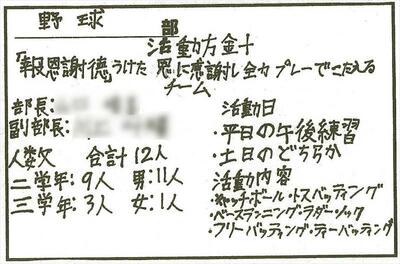 野球部
活動方針
「報恩謝徳」うけた恩に感謝し全力プレーでこたえる
チーム
部長:
副部長:
人数 合計12人
二学年:9人 男:11人
三学年:3人 女:1人
活動日
・平日の午後練習
・土日のどちらか
活動内容
・キャッチボール・トスバッティング
・ベースランニング・ラダー・ノック
・フリーバッティング・ティーバッティング